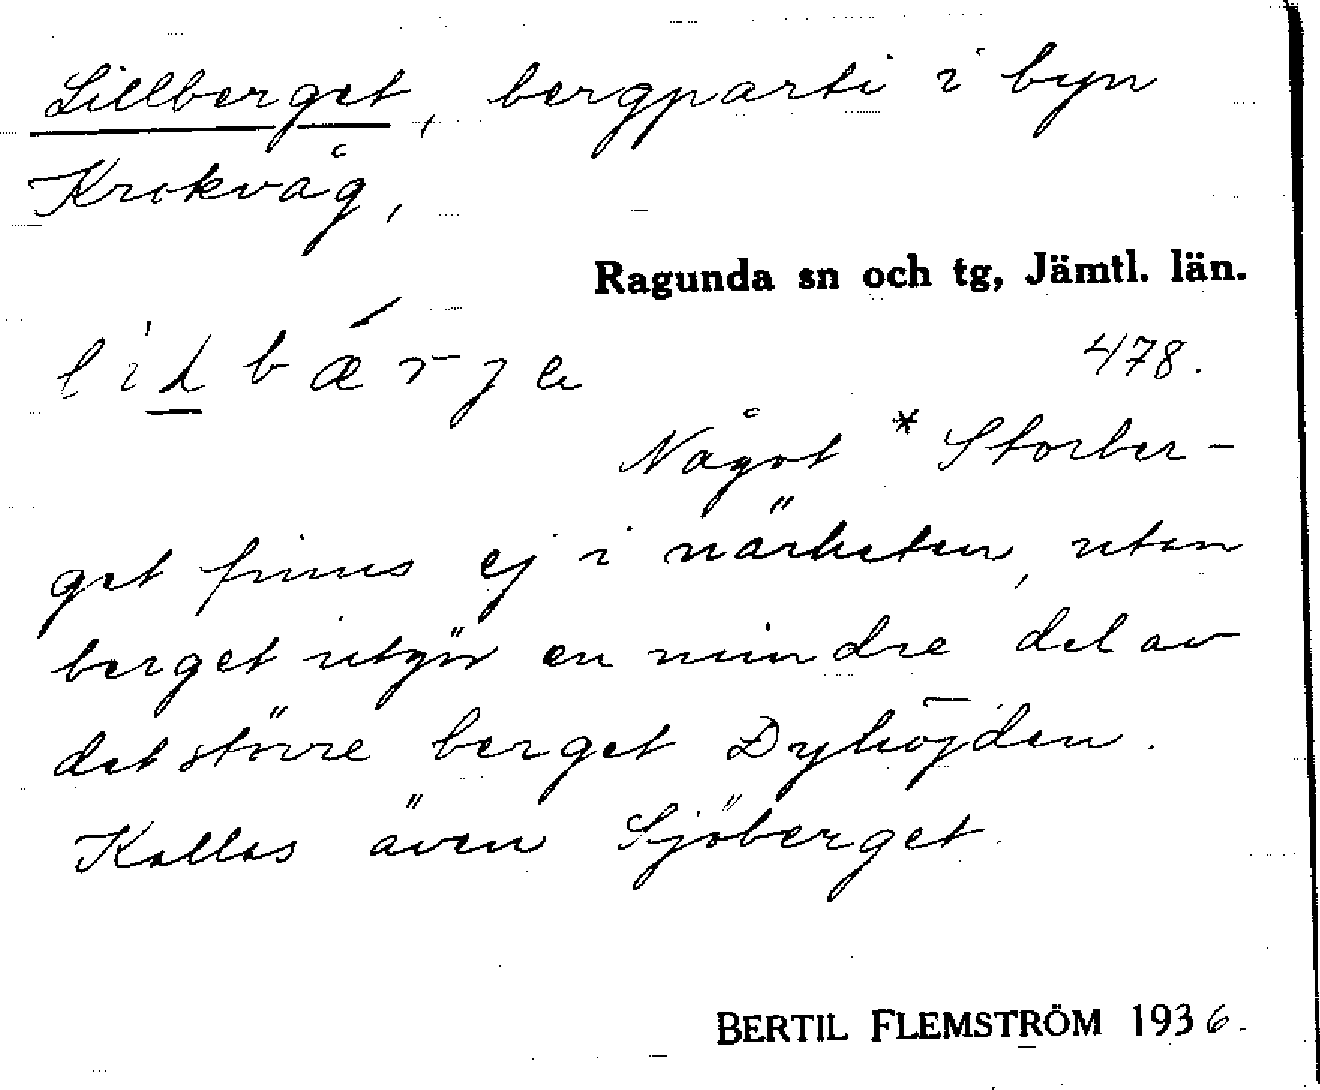 Lillberget, bergparti i byn
Krokvåg,
Ragunda sn och tg, Jämtl. län.
478.
Något * Storber-
get finnes ej i närheten, utan
berget utgör en mindre del av
det större berget Dyhöjden.
Kallas även Sjöberget.
BERTIL FLEMSTRÖM 1936.